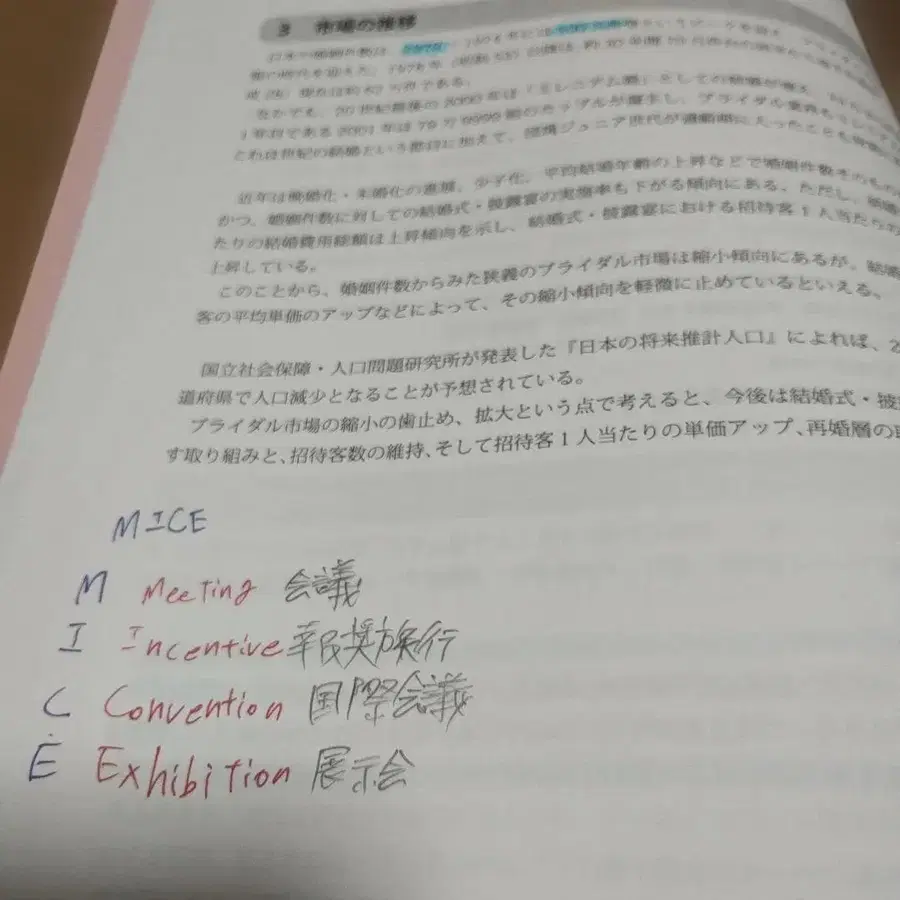 3 市場の推移
1人目である2001年は79万9999組のカップルが誕生し、ブライダル業界も
これは世紀の結婚という節目に加えて、団塊ジュニア世代が適齢期に入ったことも
近年は晩婚化・未婚化の進展、少子化、平均結婚年齢の上昇などで婚姻件数そのもの
かつ、婚姻件数に対しての結婚式・披露宴の実施率も下がる傾向にある。ただし、
たりの結婚費用総額は上昇傾向を示し、結婚式・披露宴における招待客1人当たり
上昇している。
このことから、婚姻件数からみた狭義のブライダル市場は縮小傾向にあるが、結婚
客の平均単価のアップなどによって、その縮小傾向を軽微に止めているといえる。
国立社会保障・人口問題研究所が発表した『日本の将来推計人口』によれば、2
道府県で人口減少となることが予想されている。
ブライダル市場の縮小の歯止め、拡大という点で考えると、今後は結婚式・披
す取り組みと、招待客数の維持、そして招待客1人当たりの単価アップ、再婚層の
MICE
M Meeting 会議
I Incentive 報奨旅行
C Convention 国際会議
E Exhibition 展示会